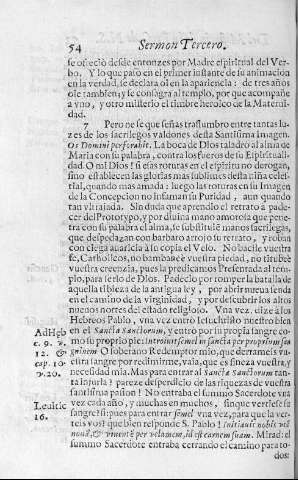 54 Sermon Tercero.
se ofreciò desde entonzes por Madre espiritual del Ver-
bo. Y lo que pasò en el primer instante de su animacion
en la verdad, se declara oì en la apariencia: de tres años
oìe tambien, y se consagra al templo, por que acompañe
a vno, y otro misterio el timbre heroico de la Materni-
dad.
7 Pero ne se que señas trasslumbro entre tantas lu-
zes de los sacrilegos valdones desta Santissima imagen.
Os Domini perforabit. La boca de Dios taladrò al alma de
Maria con su palabra, contra los fueros de su Espiritual-
dad. O mi Dios! si esas roturas en el espiritu no derogan,
sino establecen las glorias mas sublimes desta niña celes-
tial, quando mas amada: luego las roturas en su Imagen
de la Concepcion no infaman su Puridad, aun quando
tan vltrajada. Sin duda que aprendio el retrato a pade-
cer del Prototypo, y por divina mano amorosa que pene-
tra con su palabra el alma, se substituìe manos sacrilegas,
que despedazan con barbaro arrojo su retrato, y roban
con ciega auaricia a su copia el Velo. No bacile vuestra
fe, Catholicos, no bambaneè vuestra piedad, no titubeè
vuestra creenzia, pues la predicamos Presentada al tem-
plo, para sèrlo de Dios. Padeciò por romper la batalla de
aquella tibieza de la antigua ley, por abrir nueua senda
en el camino de la virginidad, y por descubrir los altos
nueuos nortes del estado religioso. Vna vez, dize à los
Hebreos Pablo, vna vez entrò Iesuchristo nuestro bien
AdHeb en el Sancta Sanctorum, y entrò por su propia sangre co-
c. 9. v. mo su proprio pie: introiuit semel in sancta per proprium sa
12. & guinem O soberano Redemptor mio, que derrameis vu-
cap. 10. estra sangre por redimirme, vaìa, que es fineza vuestra, y
v. 20. necesidad mia. Mas para entrar al Sancta Sanctorum tan-
ta injuria? pareze desperdicio de las riquezas de vuestra
santisima pasion! No entraba el summo Sacerdote vna
Leuitic vez cada año, y muchas en muchos, sinque vertiesse su
16. sangre? si: pues para entrar semel vna vez, para que la ver-
teis vos? que bien responde S. Pablo! Initiauit nobis vel
nouã, & viventẽ per velamem, id est carnem suam. Mirad: el
summo Sacerdote entraba cerrando el camino para to-
dos: